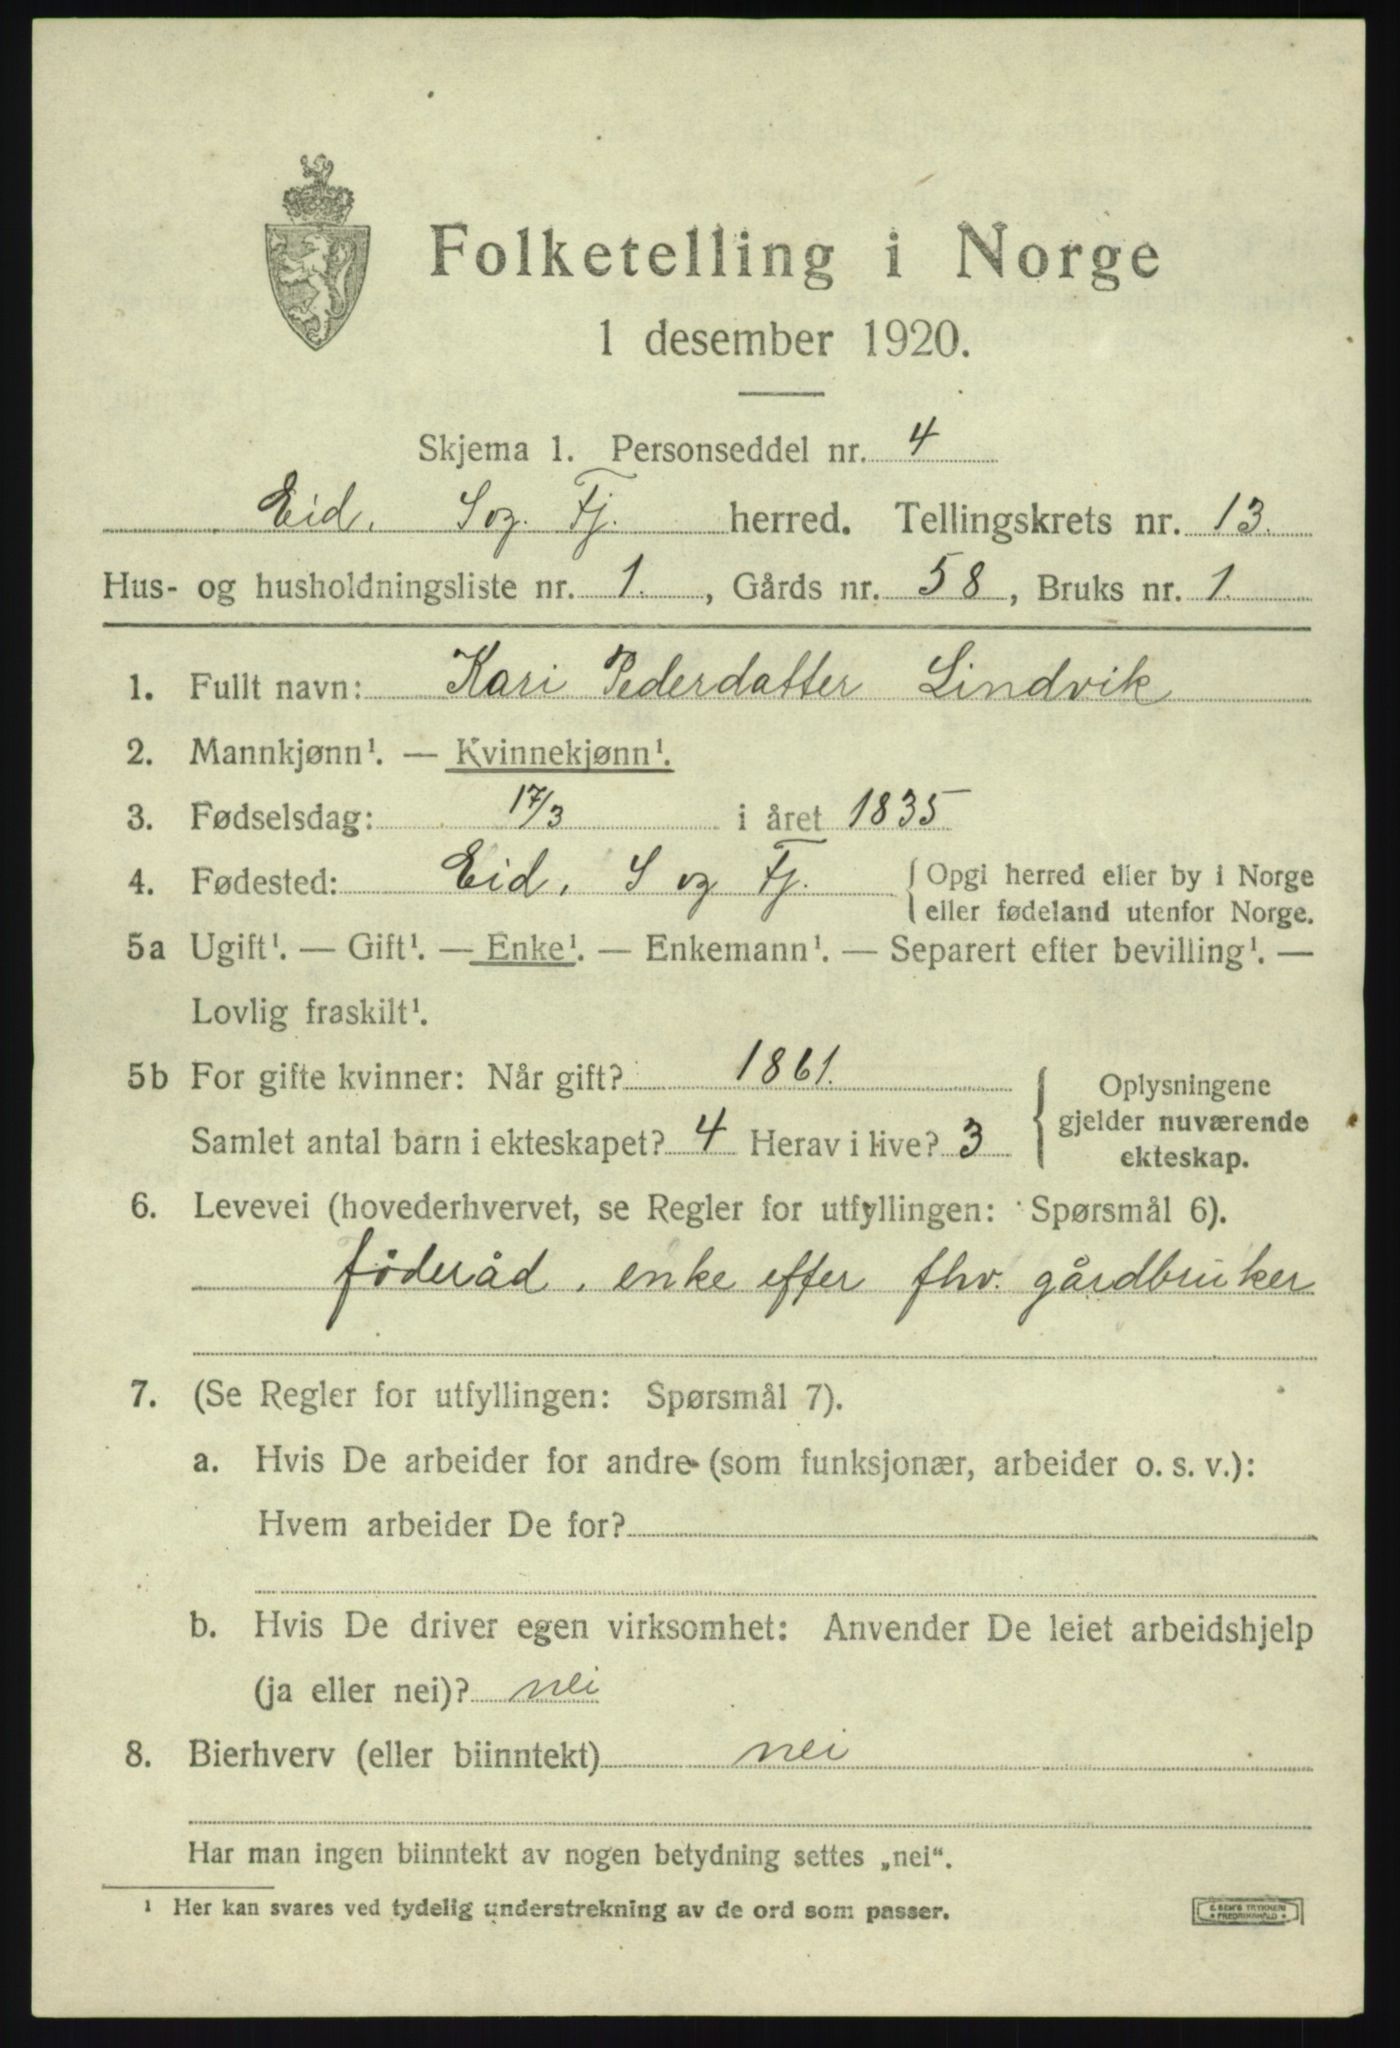 Folketelling i Norge
1 desember 1920.
Skjema 1. Personseddel nr. 4
Eid. S og. Fj. herred. Tellingskrets nr. 13.
Hus- og husholdningsliste nr. 1. , Gårds nr. 58 , Bruks nr. 1.
1. Fullt navn: Kari Pederdatter Lindvik
2. Mannkjønn¹. — Kvinnekjønn¹.
3. Fødselsdag: 17/3 i året 1835
4. Fødested: Eid. S og Fj. { Opgi herred eller by i Norge
eller fødeland utenfor Norge.
5a Ugift¹. — Gift¹. — Enke¹. — Enkemann¹. — Separert efter bevilling¹. —
Lovlig fraskilt¹.
5b For gifte kvinner: Når gift? 1861.
Samlet antal barn i ekteskapet? 4 Herav i live? 3
{ Oplysningene
gjelder nuværende
ekteskap.
6. Levevei (hovederhvervet, se Regler for utfyllingen: Spørsmål 6).
föderåd, enke efter fhv. gårdbruker
7. (Se Regler for utfyllingen: Spørsmål 7).
a. Hvis De arbeider for andre (som funksjonær, arbeider o. s. v.):
Hvem arbeider De for?
b. Hvis De driver egen virksomhet: Anvender De leiet arbeidshjelp
(ja eller nei)? nei
8. Bierhverv (eller biinntekt) nei
Har man ingen biinntekt av nogen betydning settes „nei“.
¹ Her kan svares ved tydelig understrekning av de ord som passer.
E. SEM'S TRYKKERI
FREDRIKSHALD